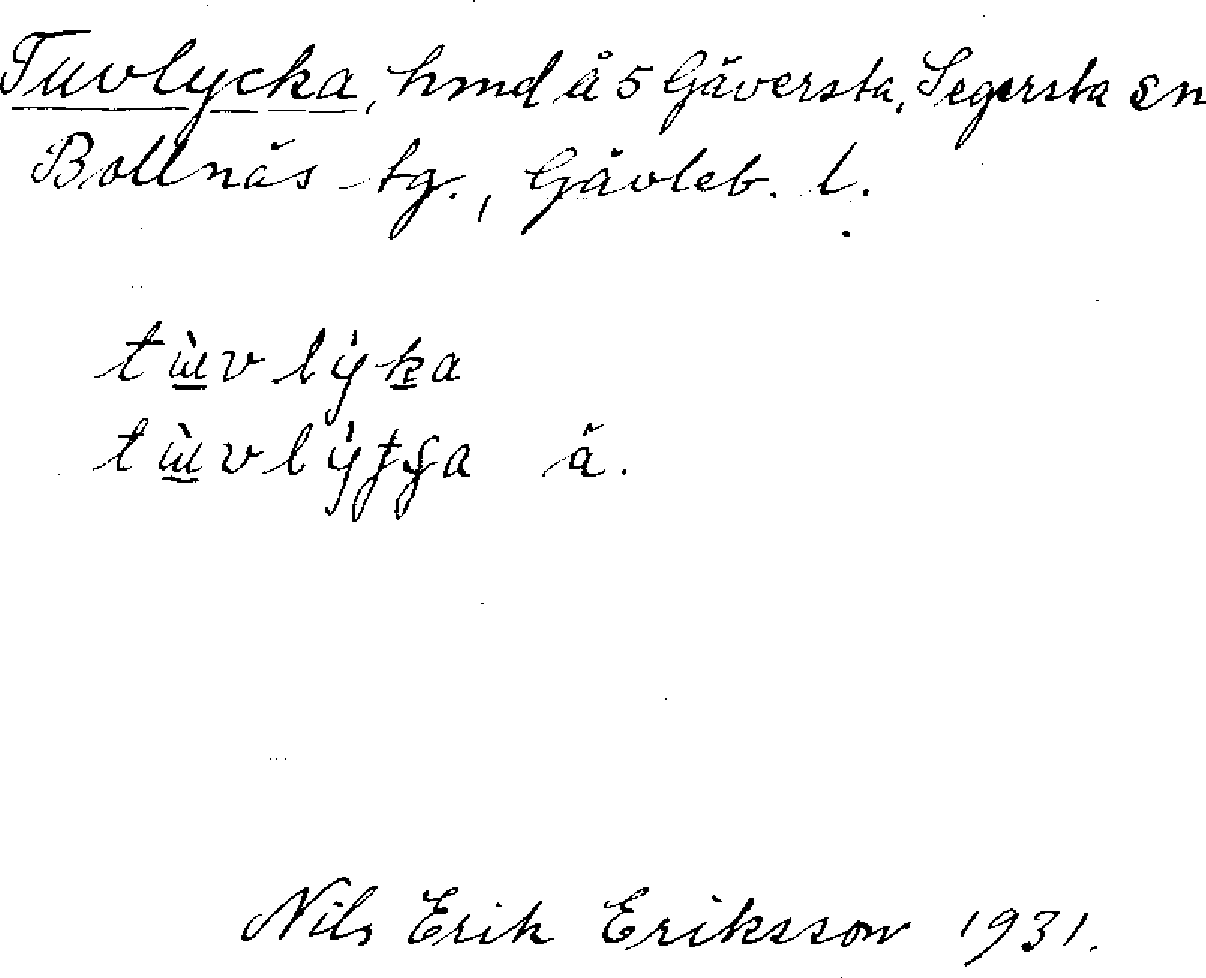 Tuvlycka, hmd å 5 Gäversta, Segersta sn
Bollnäs tg., Gävleb. l.
tùvlýka
ä.
Nils Erik Eriksson 1931.